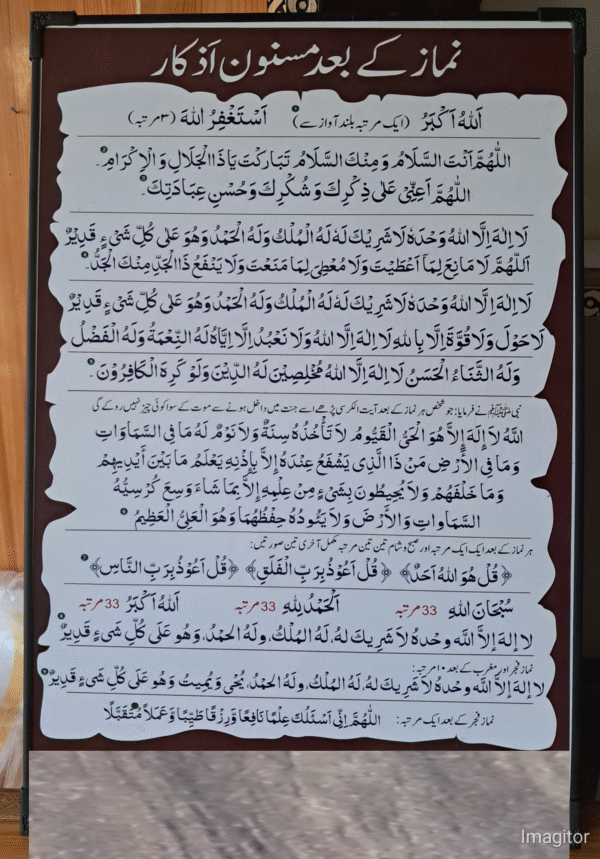 نماز کے بعد مسنون اَذکار
اَللهُ اَكْبَرُ (ایک مرتبہ بلند آواز سے) ۱ اَسْتَغْفِرُ اللهَ (۳ مرتبہ)
اَللّٰهُمَّ اَنْتَ السَّلَامُ وَمِنْكَ السَّلَامُ تَبَارَكْتَ يَا ذَا الْجَلَالِ وَالْاِكْرَامِ۔ ۲
اَللّٰهُمَّ اَعِنِّيْ عَلٰى ذِكْرِكَ وَشُكْرِكَ وَحُسْنِ عِبَادَتِكَ۔ ۳
لَا اِلٰهَ اِلَّا اللهُ وَحْدَهٗ لَا شَرِيْكَ لَهٗ لَهُ الْمُلْكُ وَلَهُ الْحَمْدُ وَهُوَ عَلٰى كُلِّ شَيْءٍ قَدِيْرٌ
اَللّٰهُمَّ لَا مَانِعَ لِمَا اَعْطَيْتَ وَلَا مُعْطِيَ لِمَا مَنَعْتَ وَلَا يَنْفَعُ ذَا الْجَدِّ مِنْكَ الْجَدُّ۔ ۴
لَا اِلٰهَ اِلَّا اللهُ وَحْدَهٗ لَا شَرِيْكَ لَهٗ لَهُ الْمُلْكُ وَلَهُ الْحَمْدُ وَهُوَ عَلٰى كُلِّ شَيْءٍ قَدِيْرٌ
لَا حَوْلَ وَلَا قُوَّةَ اِلَّا بِاللهِ لَا اِلٰهَ اِلَّا اللهُ وَلَا نَعْبُدُ اِلَّا اِيَّاهُ لَهُ النِّعْمَةُ وَلَهُ الْفَضْلُ
وَلَهُ الثَّنَاءُ الْحَسَنُ لَا اِلٰهَ اِلَّا اللهُ مُخْلِصِيْنَ لَهُ الدِّيْنَ وَلَوْ كَرِهَ الْكَافِرُوْنَ۔ ۵
نبی ﷺ نے فرمایا: جو شخص ہر نماز کے بعد آیت الکرسی پڑھے اسے جنت میں داخل ہونے سے موت کے سوا کوئی چیز نہیں روکے گی
اللَّهُ لَا إِلَهَ إِلَّا هُوَ الْحَيُّ الْقَيُّومُ لَا تَأْخُذُهُ سِنَةٌ وَلَا نَوْمٌ لَهُ مَا فِي السَّمَاوَاتِ
وَمَا فِي الْأَرْضِ مَنْ ذَا الَّذِي يَشْفَعُ عِنْدَهُ إِلَّا بِإِذْنِهِ يَعْلَمُ مَا بَيْنَ أَيْدِيهِمْ
وَمَا خَلْفَهُمْ وَلَا يُحِيطُونَ بِشَيْءٍ مِنْ عِلْمِهِ إِلَّا بِمَا شَاءَ وَسِعَ كُرْسِيُّهُ
السَّمَاوَاتِ وَالْأَرْضَ وَلَا يَئُودُهُ حِفْظُهُمَا وَهُوَ الْعَلِيُّ الْعَظِيمُ ۶
ہر نماز کے بعد ایک ایک مرتبہ اور صبح و شام تین تین مرتبہ مکمل آخری تین صورتیں:
﴿قُلْ هُوَ اللهُ اَحَدٌ﴾ ﴿قُلْ اَعُوْذُ بِرَبِّ الْفَلَقِ﴾ ﴿قُلْ اَعُوْذُ بِرَبِّ النَّاسِ﴾ ۷
سُبْحَانَ اللهِ 33 مرتبہ اَلْحَمْدُ لِلّٰهِ 33 مرتبہ اَللهُ اَكْبَرُ 33 مرتبہ
لا إله إلاَّ الله وحدهُ لاَ شَرِيكَ لهُ، لَهُ المُلكُ، وَلهُ الحمْدُ، وَهُو عَلَى كُلِّ شَيءٍ قَدِيرٌ ۸
نماز فجر اور مغرب کے بعد ۱۰ مرتبہ:
لا إله إلاَّ الله وحدهُ لاَ شَرِيكَ لهُ، لَهُ المُلكُ، وَلهُ الحمْدُ، يُحْيِي وَيُمِيتُ وَهُو عَلَى كُلِّ شَيءٍ قَدِيرٌ ۹
نماز فجر کے بعد ایک مرتبہ: اَللّٰهُمَّ اِنِّيْ اَسْئَلُكَ عِلْمًا نَافِعًا وَّرِزْقًا طَيِّبًا وَّعَمَلًا مُتَقَبَّلًا
Imagitor